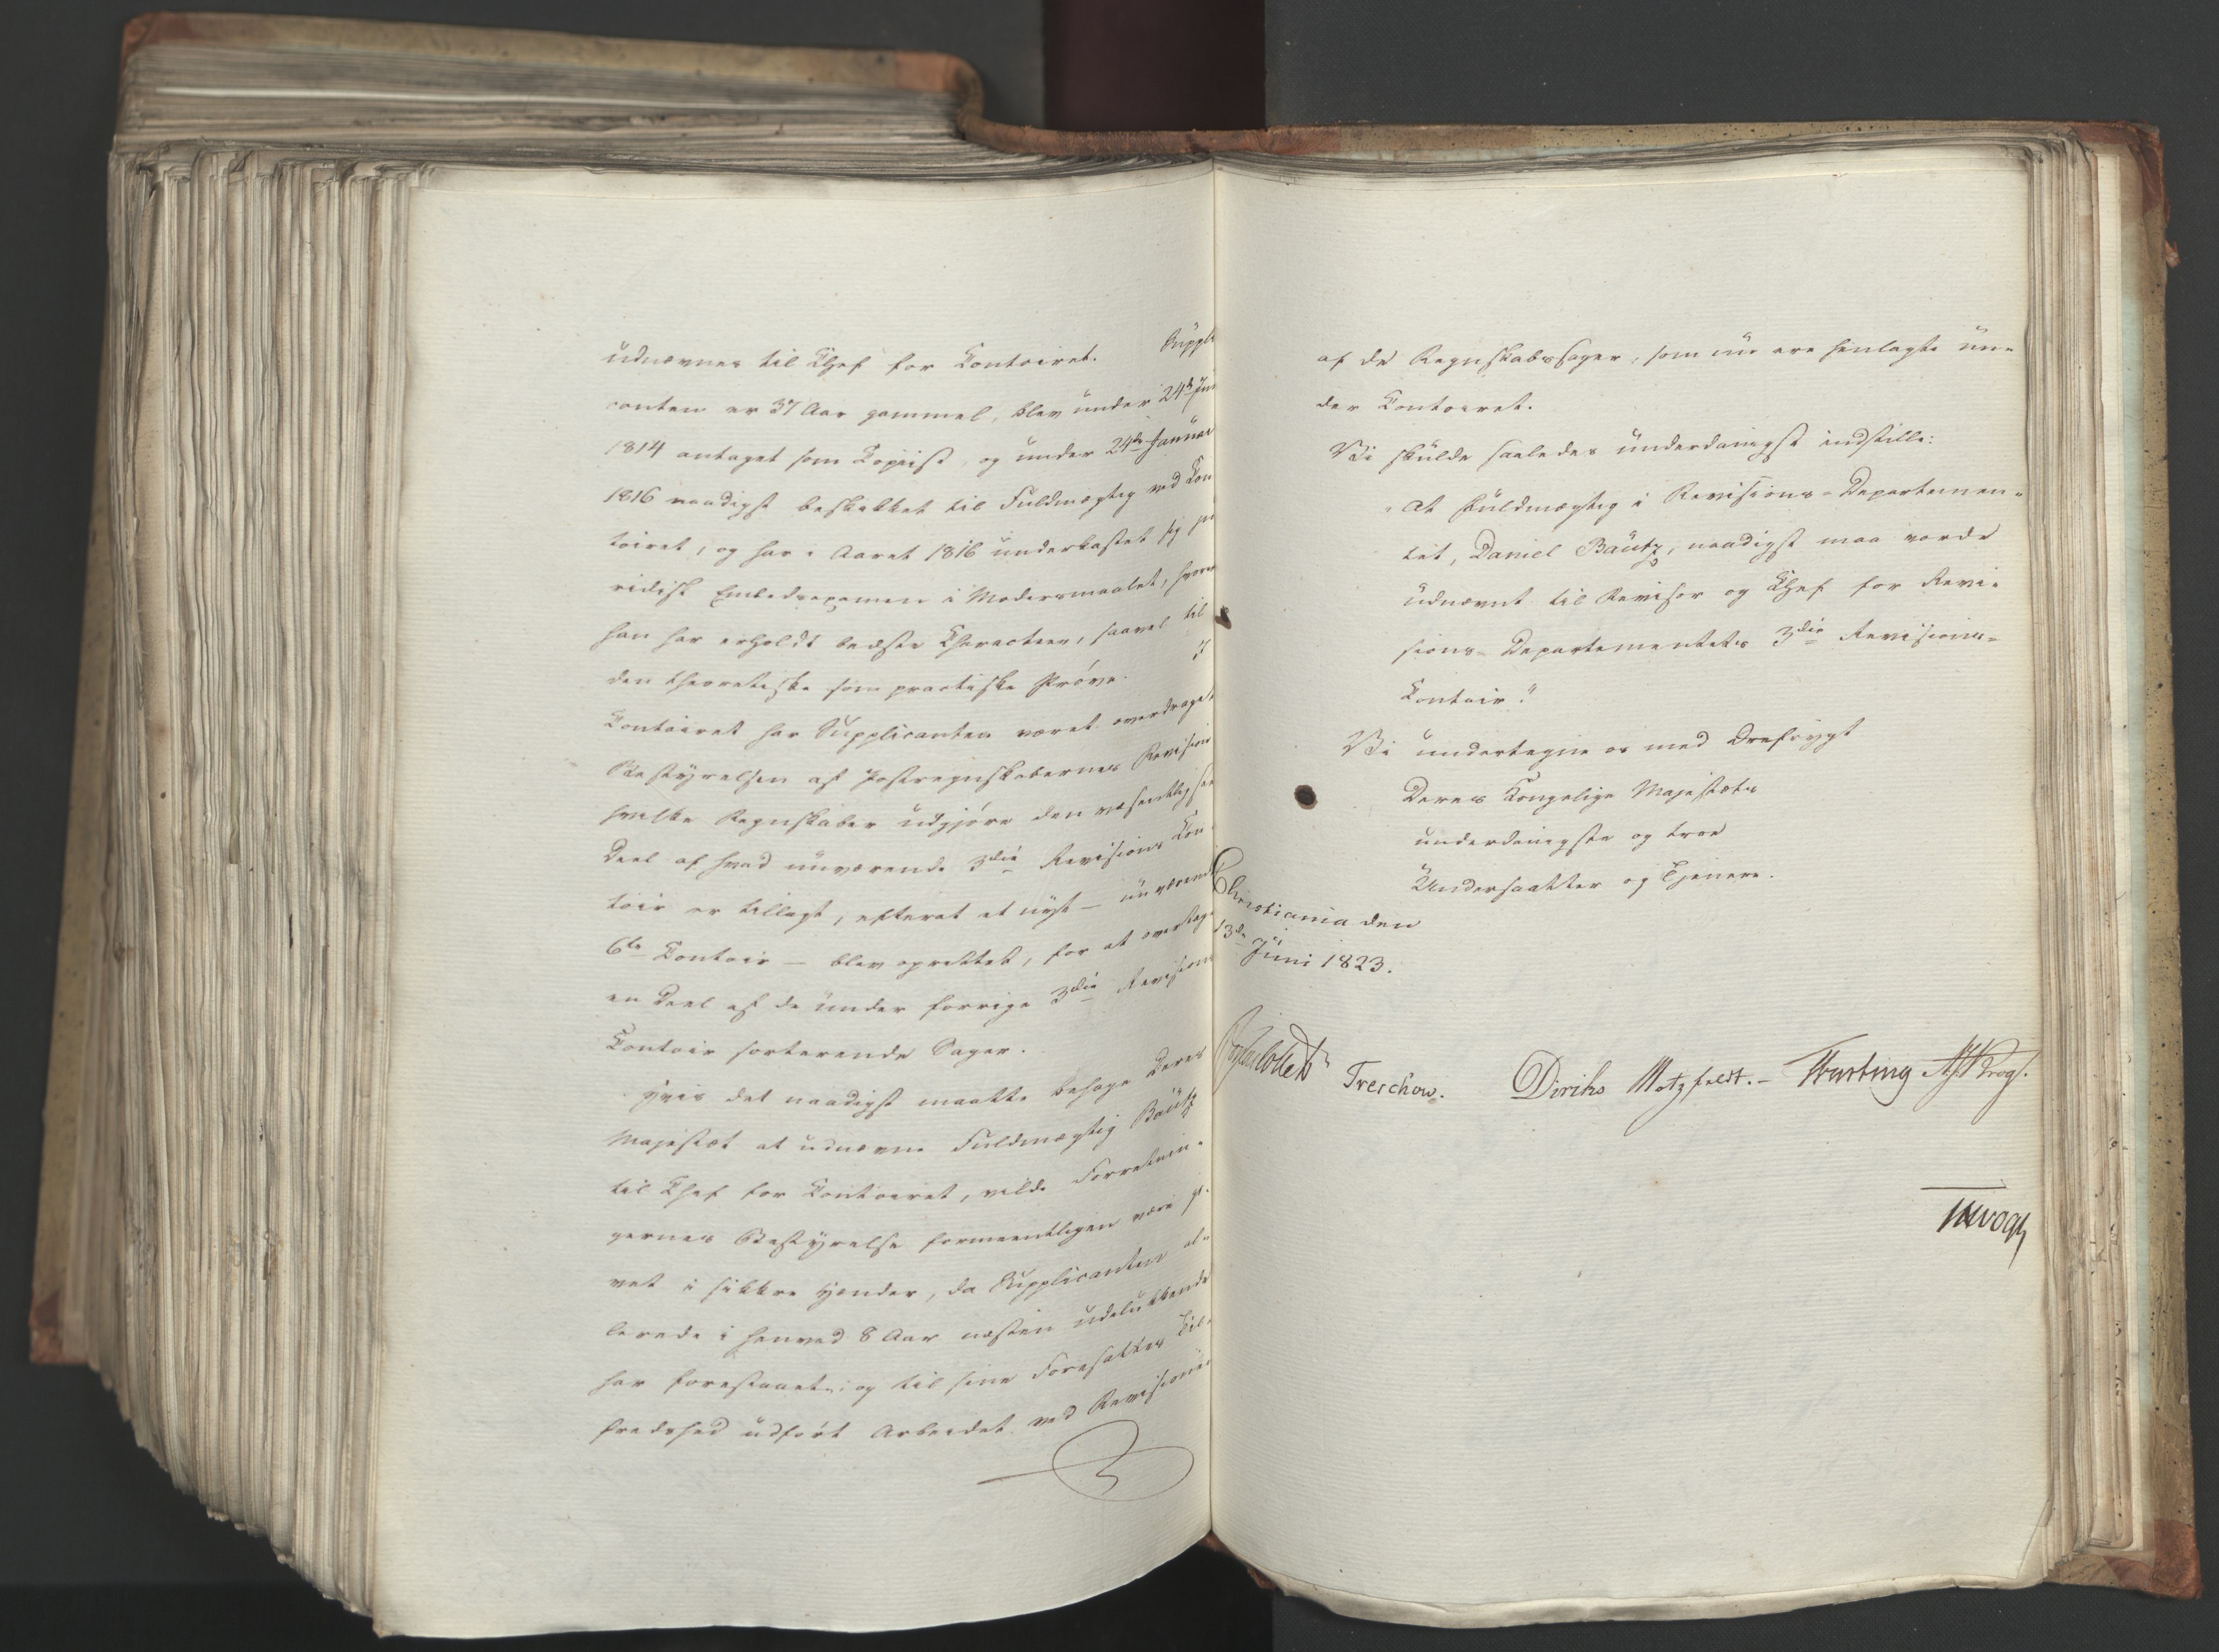 udnævnes til Chef for Contoiret. Suppli
canten er 37 Aar gammel, blev under 24de Juni
1814 antaget som Copiist, og under 24de Januar
1816 naadigst beskikket til Fuldmægtig ved Con
toiret, og har i Aaret 1816 underkastet sig ju
ridisk Embedsexamen i Modersmaalet, hvor
han har erholdt bedste Characteer, saavel til
den theoretiske som practiske Prøve. I
Contoiret har Supplicanten været overdraget
Bestyrelsen af Postregnskabernes Revision
hvilke Regnskaber udgjøre den væsentligste
Deel af hvad nuværende 3die Revisions Con
toir er tillagt, efterat et nyt – nu værende
6te Contoir – blev oprettet, for at overtage
en Deel af de under forrige 3die Revisions
Contoir sorterende Sager.
Hvis det naadigst maatte behage Deres
Majestæt at udnævne Fuldmægtig Bautz
til Chef for Contoiret, vilde Forretnin-
gernes Bestyrelse formeentligen være gi-
vet i sikkre Hænder, da Supplicanten al-
lerede i henved 8 Aar næsten udelukkende
har forestaaet, og til sine Foresattes Til-
fredshed udført Arbeidet ved Revisionen
af de Regnskabssager, som nu ere henlagte un-
der Contoiret.
Vi skulde saaledes underdanigst indstille:
"At Fuldmægtig i Revisions-Departemen-
tet, Daniel Bautz, naadigst maa vorde
udnævnt til Revisor og Chef for Revi-
sions-Departementets 3die Revisions-
Contoir."
Vi undertegne os med Ærefrygt
Deres Kongelige Majestæts
underdanigste og troe
Undersaatter og Tjenere.
Christiania den
13de Juni 1823.
Treschow. Diriks Motzfeldt. – Krog.